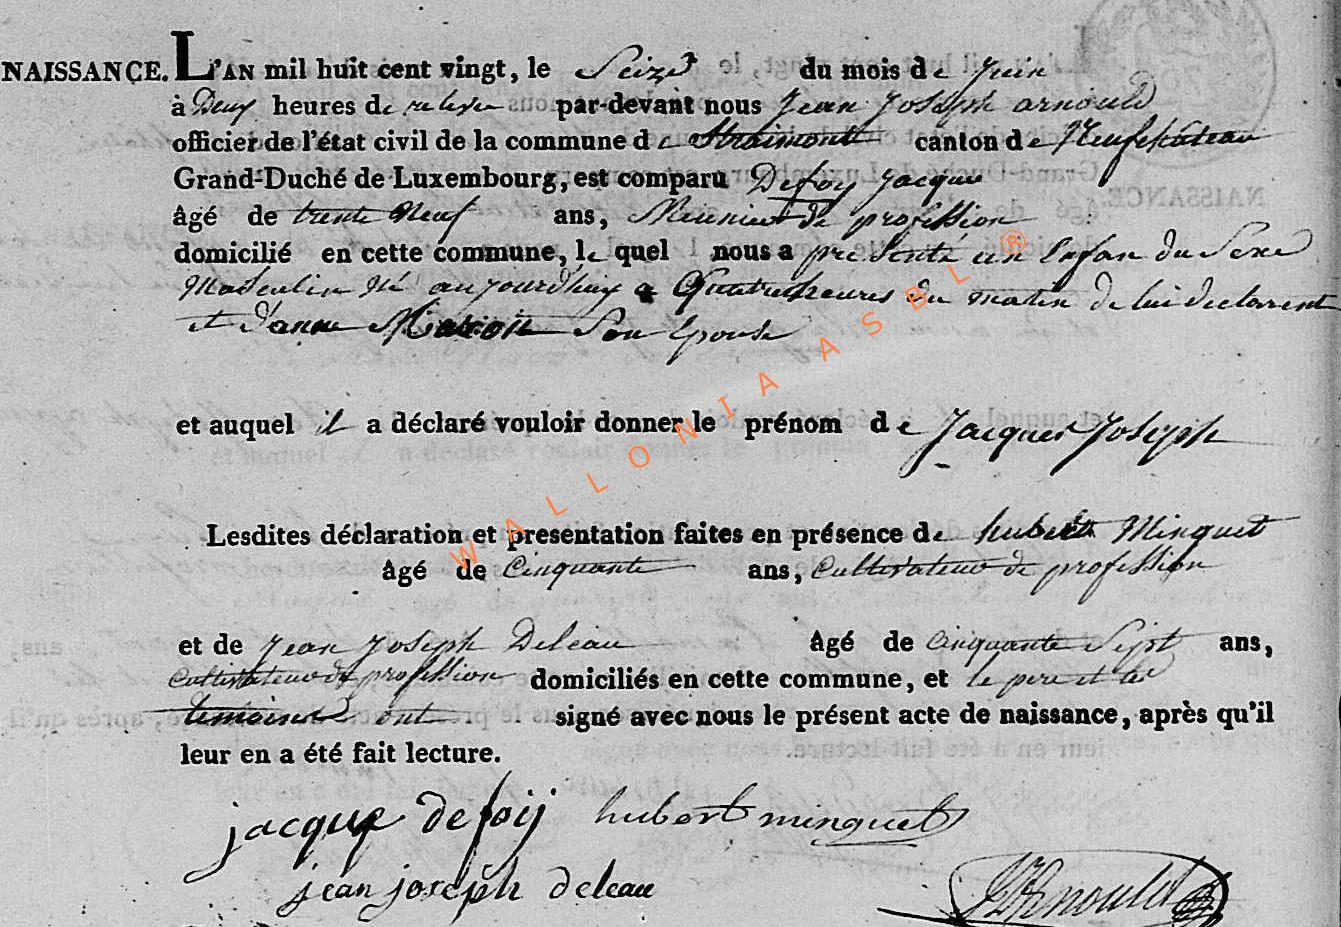 NAISSANCE. L'AN mil huit cent vingt, le Seize du mois de Juin
à Deux heures de relevée par-devant nous Jean Joseph arnould
officier de l'état civil de la commune de Straimont canton de Neufchateau
Grand-Duché de Luxembourg, est comparu Defoy Jacque
âgé de trente Neuf ans, Meunier de profession
domicilié en cette commune, le quel nous a presenté un Enfan du Sexe
Masculin Né aujourdhuy a Quatre heures du matin de lui declarent
et d'anne Son Epouse
et auquel il a déclaré vouloir donner le prénom de Jacques Joseph
Lesdites déclaration et presentation faites en présence de hubert Minquet
âgé de Cinquante ans, Cultivateur de profession
et de Jean Joseph Deleau âgé de Cinquante Sept ans,
Cultivateur de profession domiciliés en cette commune, et le pere et les
temoins ont signé avec nous le présent acte de naissance, après qu'il
leur en a été fait lecture.
jacque defoij hubert minquet
jean joseph deleau JJArnould
WALLONIA ASBL ®